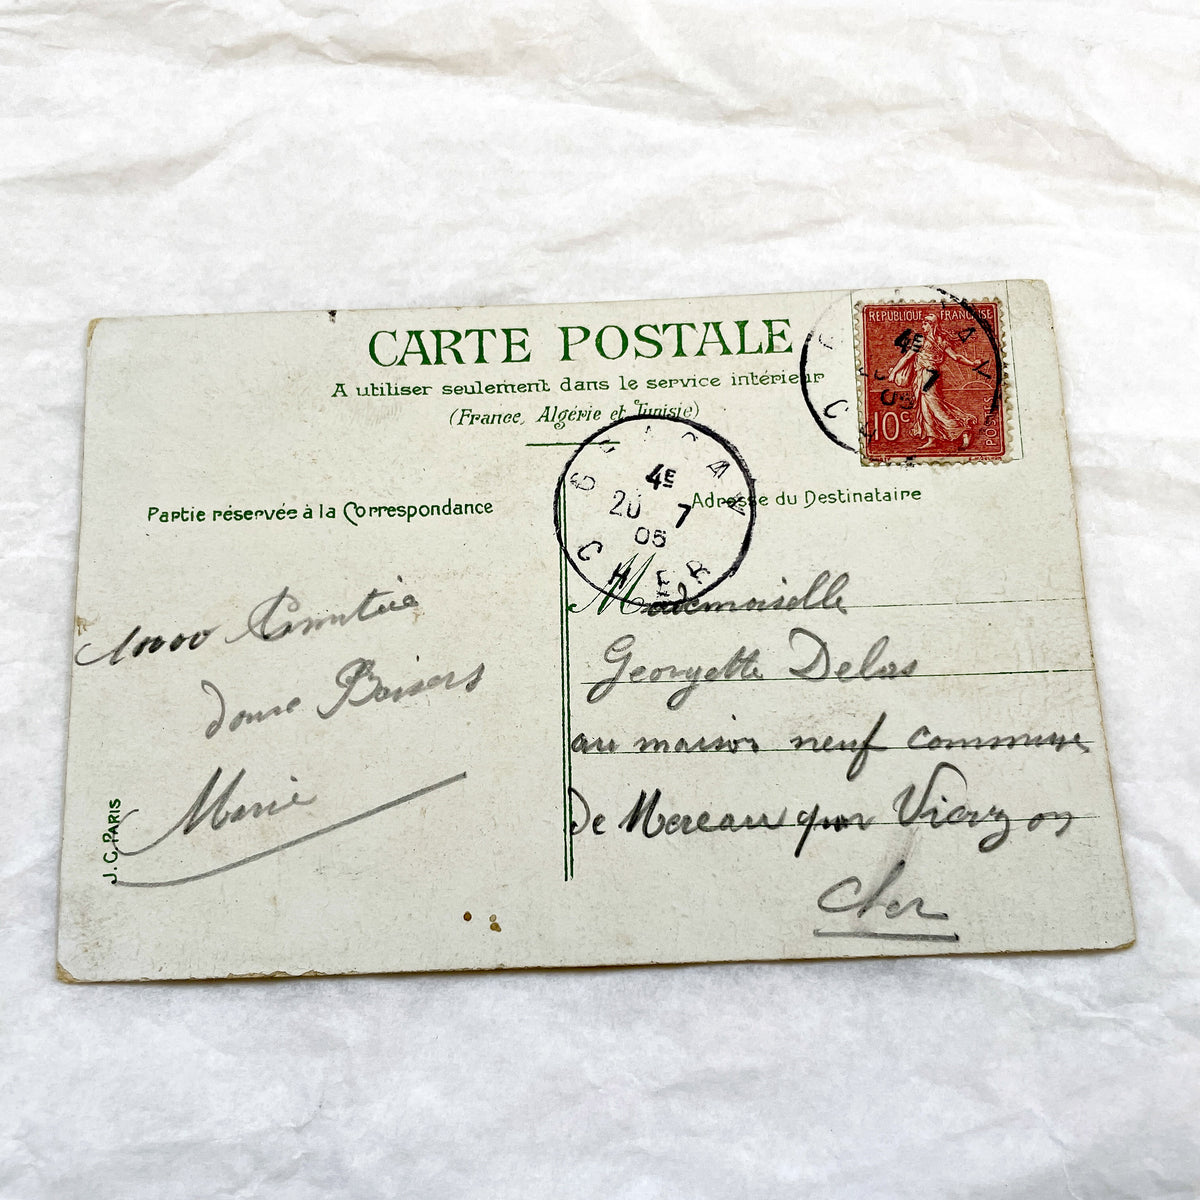 CARTE POSTALE
A utiliser seulement dans le service intérieur
(France, Algérie et Tunisie)
REPUBLIQUE FRANÇAISE
10c
POSTES
4E
7
05
4E
20 7
05
CHER
Partie réservée à la Correspondance
Adresse du Destinataire
10000
Baisers
Marie
J. C. PARIS
Mademoiselle
Georgette Delas
au maison neuf commune
De Mereau par Vierzon
Cher